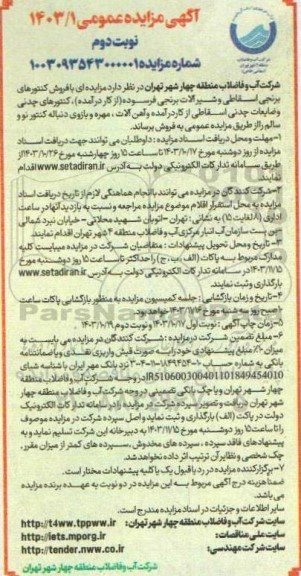 آگهی مزایده عمومی ۱۴۰۳/۱
نوبت دوم
شماره مزایده ۱۰۰۳۰۹۳۵۴۳۰۰۰۰۰۱
شرکت آب و فاضلاب منطقه چهار شهر تهران در نظر دارد مزایده ای با فروش کنتورهای
برنجی اسقاطی و شیر آلات برنجی فرسوده (از کار در آمده)، کنتورهای چدنی
و ضایعات چدنی اسقاطی از کار در آمده و آهن آلات، مهره و بازوی دنباله کنتور نو و
سالم را از طریق مزایده عمومی به فروش برساند.
۱-مهلت و محل دریافت اسناد مزایده : داوطلبان می توانند جهت دریافت اسناد
مزایده از روز دوشنبه مورخ ۱۴۰۳/۱۰/۱۷ تا ساعت ۱۵ روز چهارشنبه مورخ ۱۴۰۳/۱۰/۲۶ از
طریق سامانه تدارکات الکترونیکی دولت به آدرس www.setadiran.ir اقدام
نمایند.
۲-شرکت کنندگان در مزایده می توانند با انجام هماهنگی لازم از تاریخ دریافت اسناد
مزایده به محل استقرار اقلام موضوع مزایده مراجعه و نسبت به بازدید آنها در ساعت
اداری (۸ لغایت ۱۵) به نشانی : تهران - اتوبان شهید محلاتی - خیابان نبرد شمالی
- بن بست سازمان آب انبار مرکزی آب و فاضلاب منطقه ۴ شهر تهران اقدام نمایند.
۳-تاریخ و محل تحویل پیشنهادات : متقاضیان شرکت در مزایده میبایست کلیه
مدارک مربوط به پاکات (الف، ب، ج) را حداکثر تا ساعت ۱۵ روز دوشنبه مورخ
۱۴۰۳/۱۱/۱۵ در سامانه تدارکات الکترونیکی دولت به آدرس www.setadiran.ir
بارگذاری و ثبت نمایند.
۴-تاریخ و زمان بازگشایی : جلسه کمیسیون مزایده به منظور بازگشایی پاکات ساعت
صبح روز سه شنبه مورخ ۱۴۰۳/۱۱/۱۶ خواهد بود.
۵-زمان چاپ آگهی : نوبت اول ۱۴۰۳/۱۰/۱۷ و نوبت دوم ۱۴۰۳/۱۰/۱۹
۶-مبلغ تضمین شرکت در مزایده : شرکت کنندگان در مزایده می بایست به
میزان ۱۰٪ مبلغ پیشنهادی خود را به صورت فیش واریزی نقدی و یا ضمانتنامه
بانکی به شماره حساب نزد بانک مهر ایران با شناسه شبای
IR510600300401101849454010 در وجه شرکت آب و فاضلاب منطقه
چهار شهر تهران و یا چک بانکی تضمینی در وجه شرکت آب و فاضلاب منطقه چهار
شهر تهران دریافت و تصویر سپرده شرکت در مزایده را در سامانه تدارکات الکترونیک
دولت در پاکت (الف) بارگذاری و ثبت نمایند و اصل سپرده شرکت در مزایده موصوف
را تا ساعت ۱۵ روز دوشنبه مورخ ۱۴۰۳/۱۱/۱۵ به دبیرخانه این شرکت تسلیم نماید و به
پیشنهادهای فاقد سپرده، سپرده های مخدوش، سپرده های کمتر از میزان مقرر،
چک شخصی و نظایر آن ترتیب اثر داده نخواهد شد.
۷-برگزار کننده مزایده در رد یا قبول یک یا کلیه پیشنهادات مختار است.
ضمنا هزینه درج آگهی مربوط به این مزایده در دو نوبت به عهده برنده مزایده
می باشد.
سایر اطلاعات و جزئیات در اسناد مزایده مندرج است.
سایت شرکت آب و فاضلاب منطقه چهار شهر تهران: http://t4ww.tppww.ir
سایت ملی مناقصات: http://iets.mporg.ir
سایت شرکت مهندسی: http://tender.nww.co.ir
شرکت آب و فاضلاب منطقه چهار شهر تهران